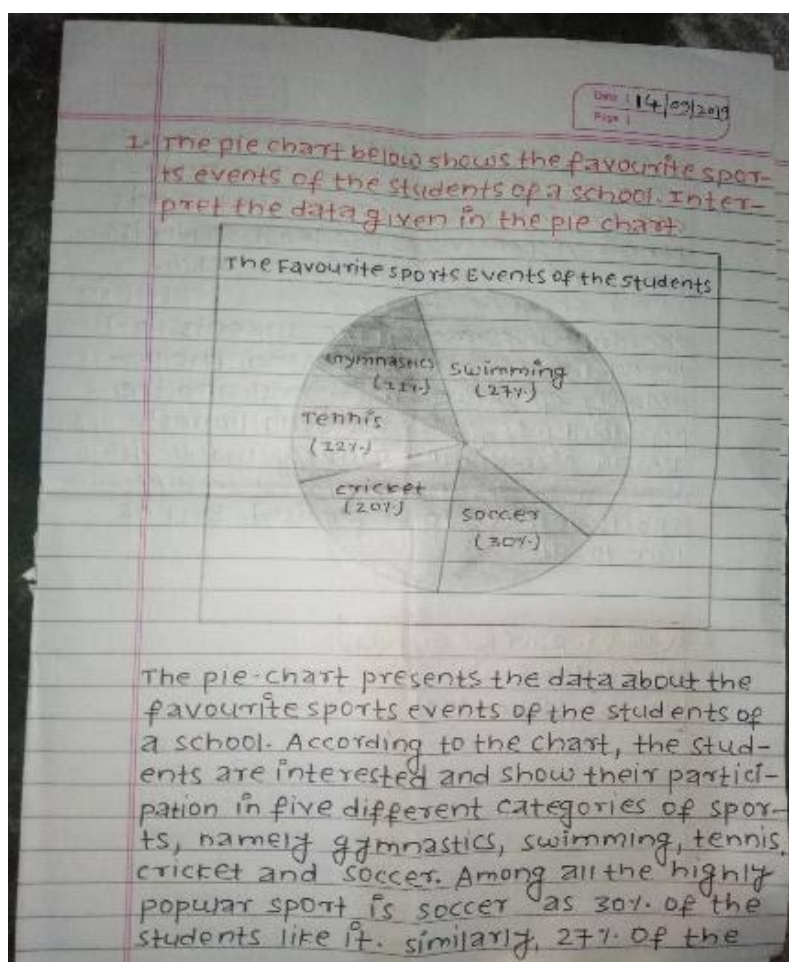 Date : 14/09/2019
Page :
1. The pie chart below shows the favourite spor-
ts events of the students of a school. Inter-
pret the data given in the pie chart.
The Favourite sports Events of the students
Gymnastics
(11%)
swimming
(27%)
Tennis
(12%)
cricket
(20%)
soccer
(30%)
The pie-chart presents the data about the
favourite sports events of the students of
a school. According to the chart, the stud-
ents are interested and show their partici-
pation in five different categories of spor-
ts, namely gymnastics, swimming, tennis,
cricket and soccer. Among all the highly
popular sport is soccer as 30%. of the
students like it. similarly, 27%. of the